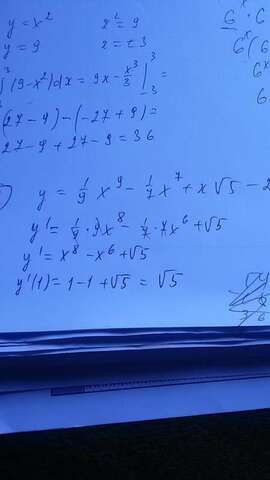 y = x² x² = 9
y = 9 x = ±3
∫ (9-x²)dx = 9x - x³/3 |³₋₃ =
(27-9) - (-27+9) =
27-9+27-9 = 36
6ˣ · 6
6ˣ(6
6ˣ
6
y = 1/9 x⁹ - 1/7 x⁷ + x√5 - 2
y' = 1/9 · 9x⁸ - 1/7 · 7x⁶ + √5
y' = x⁸ - x⁶ + √5
y'(1) = 1-1+√5 = √5